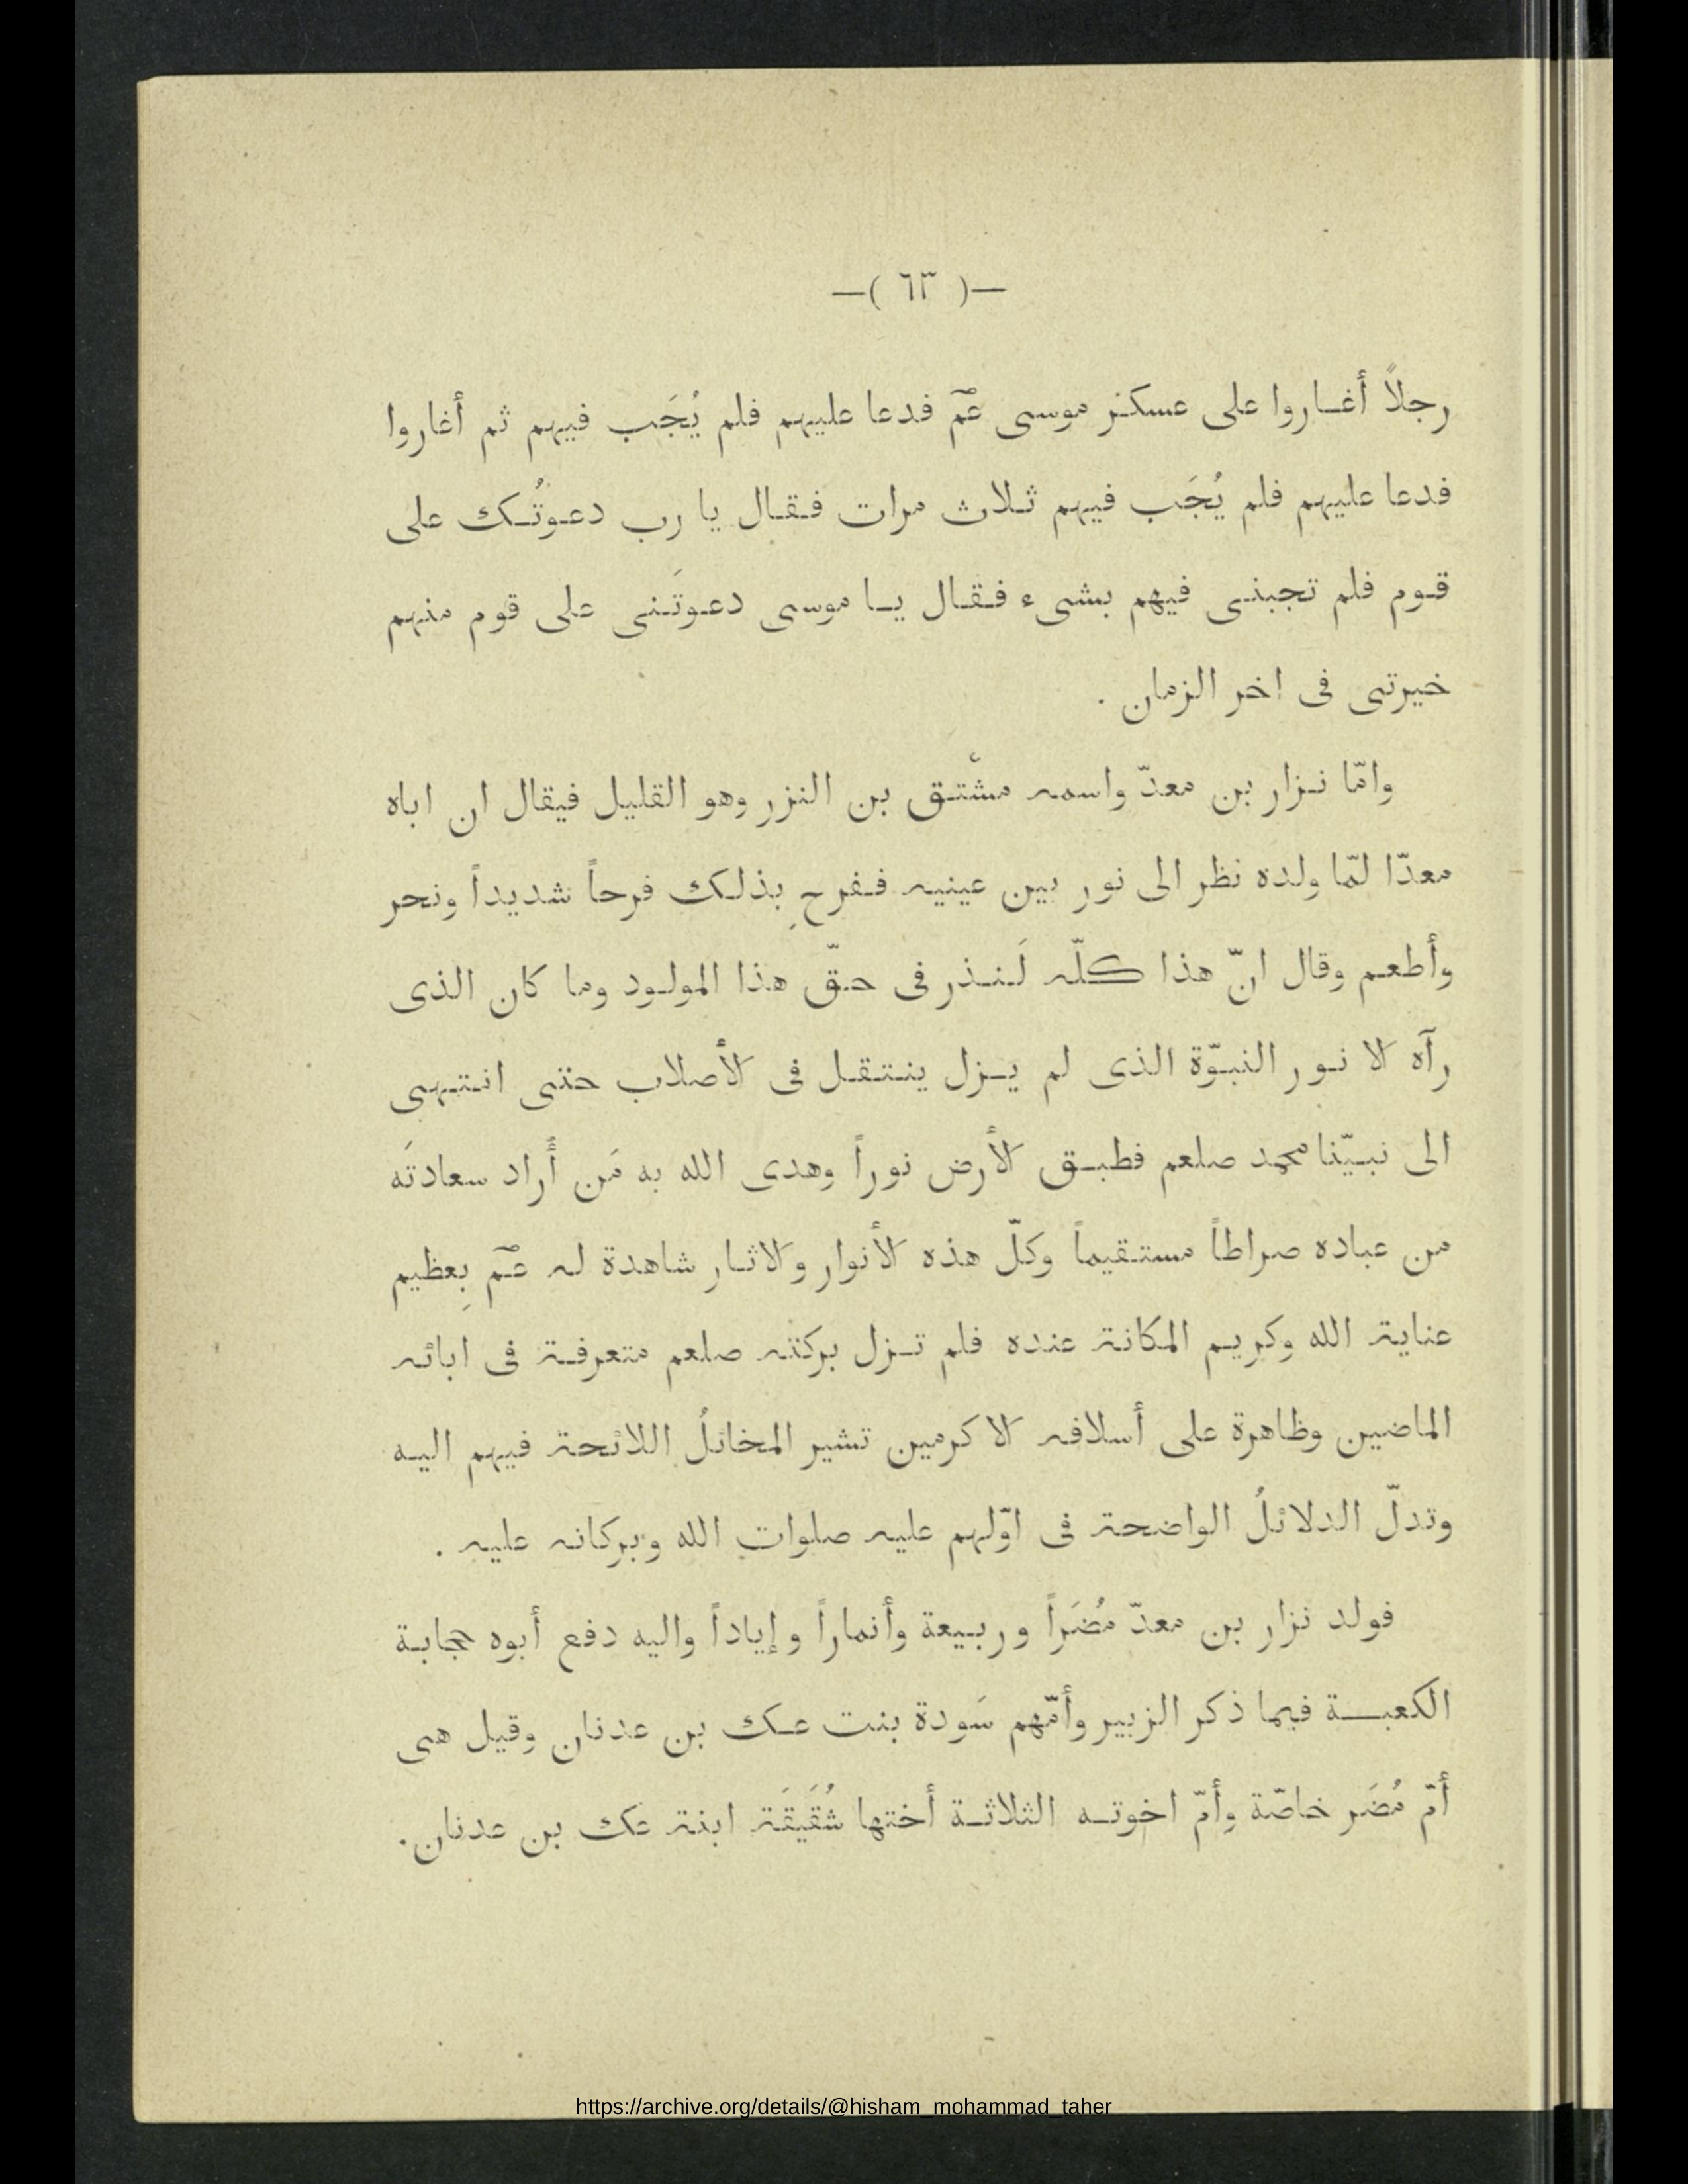 —( ٦٣ )—
رجلاً أغاروا على عسكر موسى عمّ فدعا عليهم فلم يُجَب فيهم ثم أغاروا
فدعا عليهم فلم يُجَب فيهم ثلاث مرات فقال يا رب دعوتُك على
قوم فلم تجبنى فيهم بشىء فقال يا موسى دعوتَنى على قوم منهم
خيرتى فى اخر الزمان .
وامّا نزار بن معدّ واسمه مشْتق بن النزر وهو القليل فيقال ان اباه
معدّا لمّا ولده نظر الى نور بين عينيه ففرح بِذلك فرحاً شديداً ونحر
وأطعم وقال انّ هذا كلّه لَنذر فى حقّ هذا المولود وما كان الذى
رآه الا نور النبوّة الذى لم يزل ينتقل فى الأصلاب حتى انتهى
الى نبيّنا محمد صلعم فطبق الأرض نوراً وهدى الله به مَن أراد سعادتَه
من عباده صراطاً مستقيماً وكلّ هذه الأنوار والاثار شاهدة له عمّ بِعظيم
عناية الله وكريم المكانة عنده فلم تزل بركته صلعم متعرفة فى ابائه
الماضين وظاهرة على أسلافه الاكرمين تشير المخائلُ اللائحة فيهم اليه
وتدلّ الدلائلُ الواضحة فى اوّلهم عليه صلوات الله وبركاته عليه .
فولد نزار بن معدّ مُضَراً وربيعة وأنماراً وإياداً واليه دفع أبوه حجابة
الكعبة فيما ذكر الزبير وأمّهم سَودة بنت عك بن عدنان وقيل هى
أمّ مُضَر خاصّة وأمّ اخوته الثلاثة أختها شُقَيقَة ابنة عك بن عدنان.
https://archive.org/details/@hisham_mohammad_taher